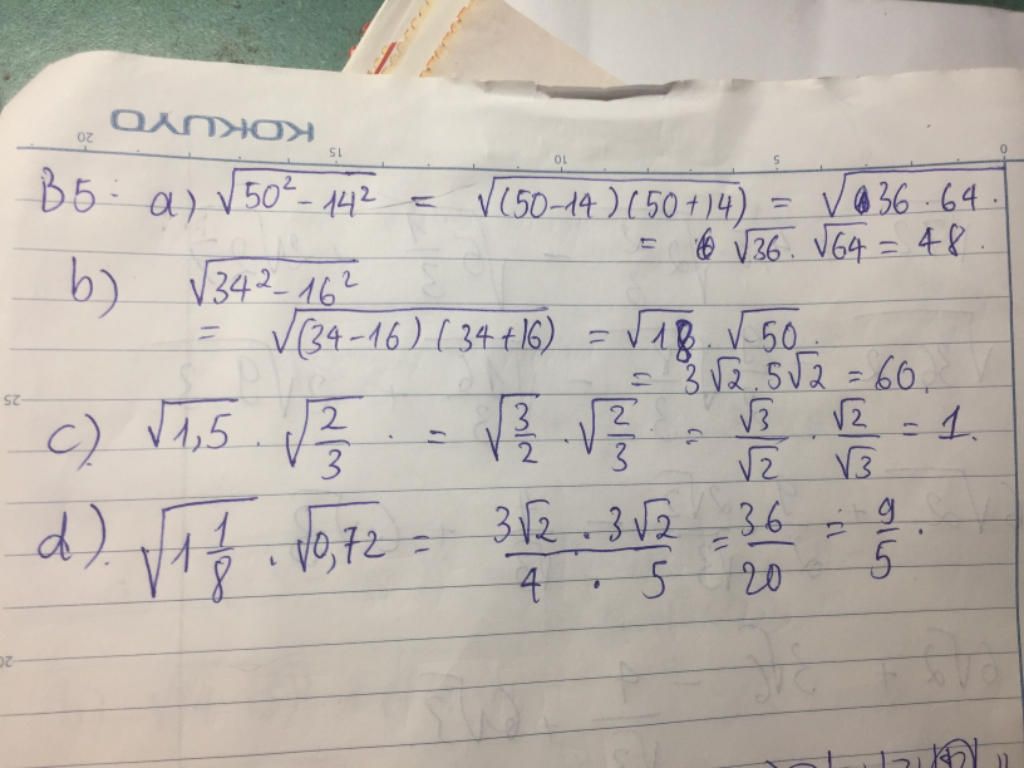 KOKUYO
20 15 10 5 0
B5: a) √(50² - 14²) = √((50-14)(50+14)) = √(36 . 64).
= √36 . √64 = 48.
b) √(34² - 16²)
= √((34-16)(34+16)) = √18 . √50.
= 3√2 . 5√2 = 60.
25
c). √1,5 . √(2/3) . = √(3/2) . √(2/3) = √3/√2 . √2/√3 = 1.
d). √(1 1/8) . √0,72 = (3√2 . 3√2)/(4 . 5) = 36/20 = 9/5.
20